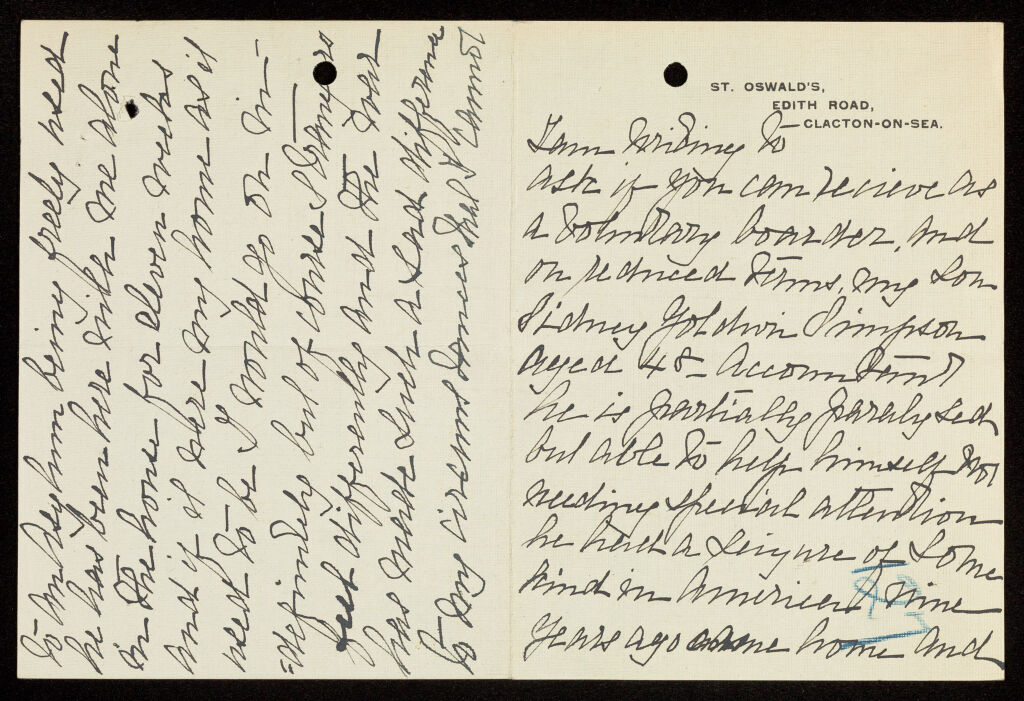 ST. OSWALD'S,
EDITH ROAD,
CLACTON-ON-SEA.
I am writing to
ask if you can recieve as
a voluntary boarder, and
on reduced terms, my son
Sidney Goldwin Simpson
aged 48 - Accountant
he is partially paralysed
but able to help himself not
needing special attention
he had a seizure of some
kind in America nine
years ago came home and
to an asylum being freely used
he has been here with me alone
in the house for eleven weeks
and if I were my home as it
used to be I would go on in-
definitely but of course strangers
feel differently and the war
has made such a sad difference
to my circumstances that I cannot